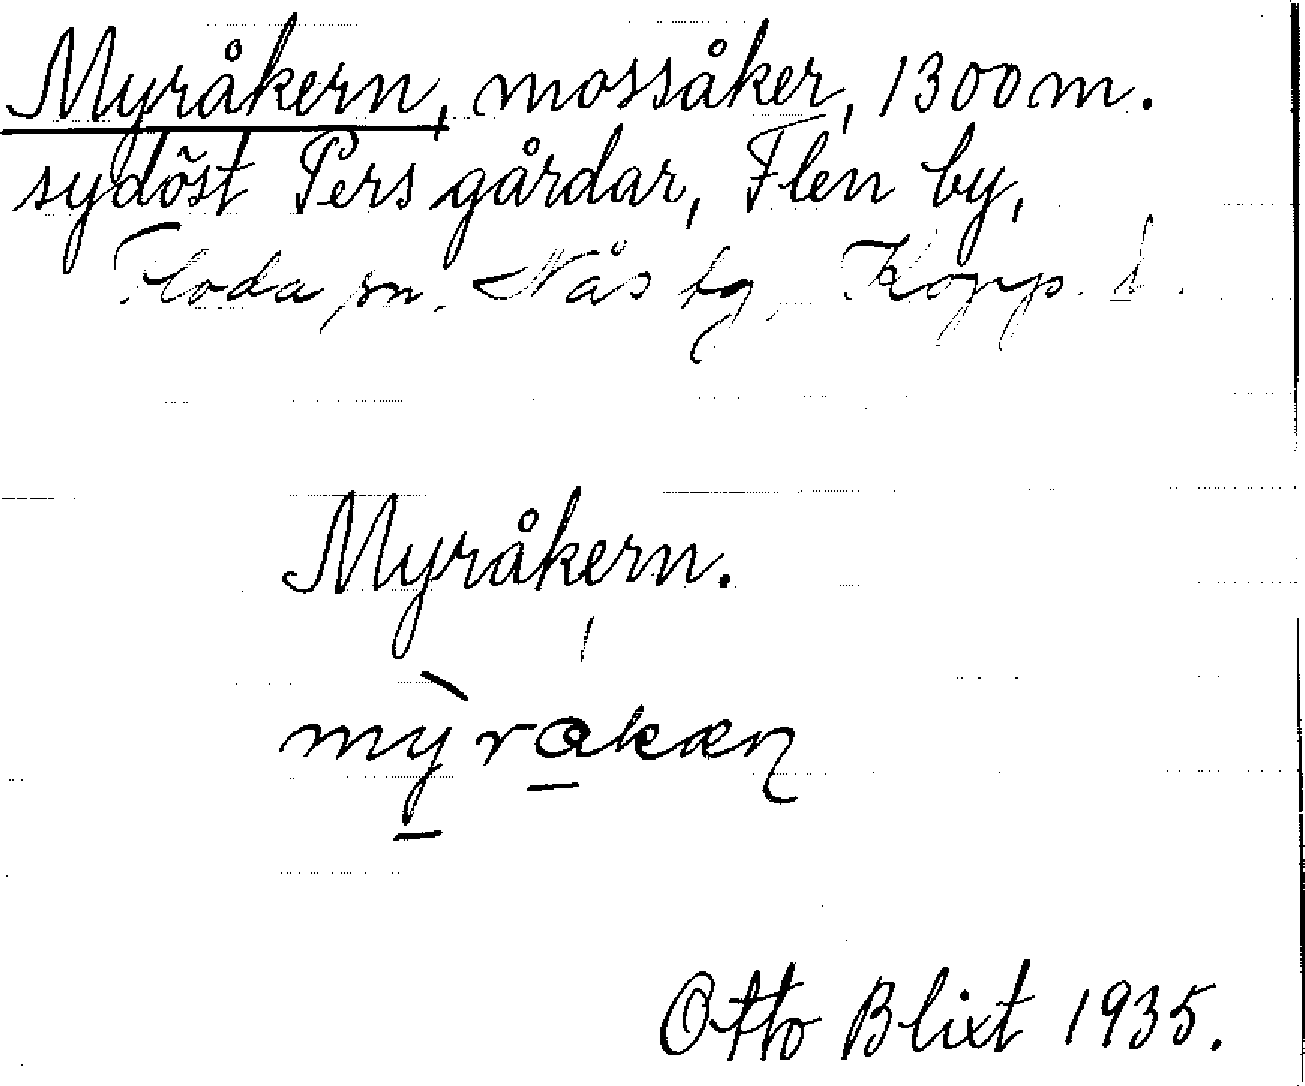 Myråkern, mossåker, 1300 m.
sydöst Pers gårdar, Flen by,
Floda sn. Nås tg, Kopp. l.
Myråkern.
mỳ̱rɑ̱kæɳ
Otto Blixt 1935.